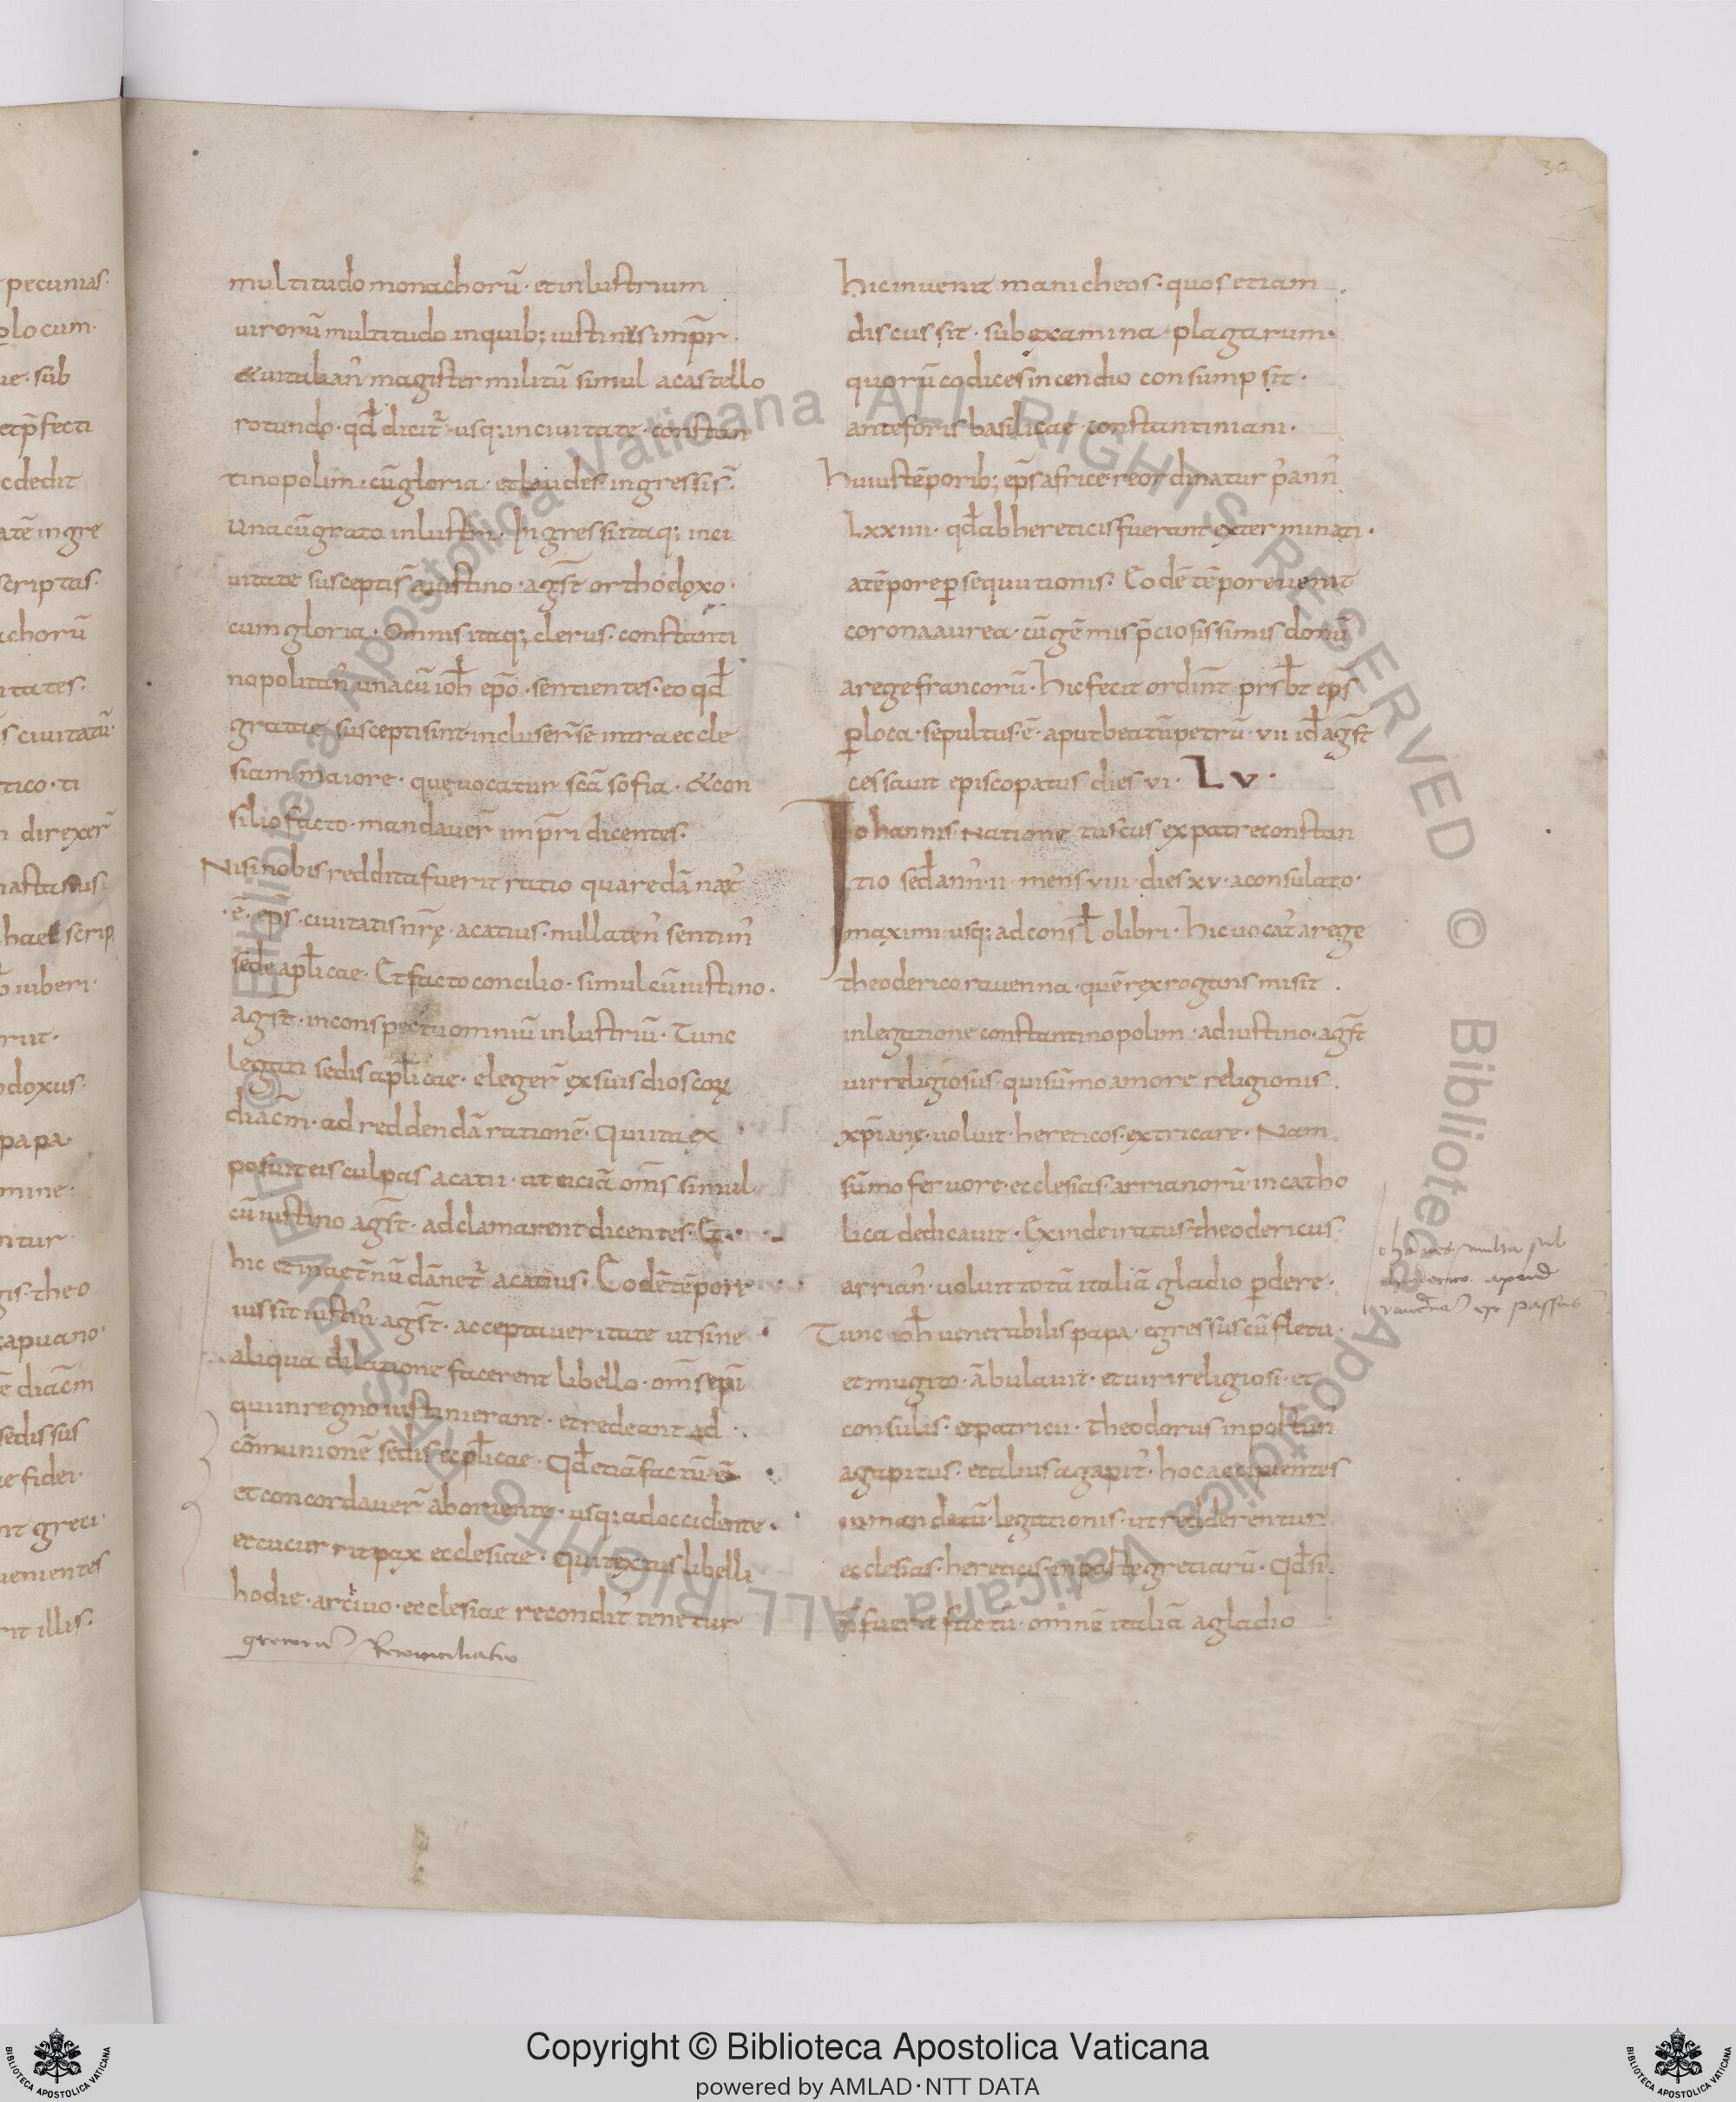 pecunias·
locum·
ue· sub
etp̄fecti
cdedit
atē ingre
scriptas·
achorū
itates·
s ciuitatū·
tico· ti
direxer̄
naſtasius·
hael scrip
iuberi·
rit·
odoxus·
papa
mine·
ntur
gis· theo
capuano·
ē diacm̄
sedis sus
ae fidei·
nt greci·
uenientes
rit illis·
multitudo monachorū· et inluſtrium
uirorū multitudo inquib; iuſtinus imp̄r·
& uitalian᾽ magiſter militū simul acastello
rotundo· qđ dicit᾽· usq; inciuitate· conſtan
tinopolim· cū gloria· et laudes· ingressi s̄·
una cū grato inluſtri· Ingressi itaq; inci
uitate suscepti s̄ aiuſtino· agſ̄t orthodoxo·
cum gloria· Omnis itaq; clerus· conſtanti
nopolitan᾽ una cū ioħ ep̄o· sentientes· eo qđ
gratae suscepti sint· incluser̄ se intra eccle
siam maiore· quę uocatur scā sofia· & con
silio facto· mandauer̄ imp̄ri dicentes·
Nisi nobis reddita fuerit ratio quare dānat᾽
·ē· ep̄s· ciuitatis nr̄ę· acatius· nullaten᾽ sentim᾽
sede apl̄icae· Et facto concilio· simul cū iuſtino·
agſ̄t· inconspectu omniū inluſtriū· Tunc
legati sedis apl̄icae· eleger̄ exsuis dioscorꝝ
diacm̄· ad reddendā rationē· Qui ita ex
posuit eis culpas acatii· ut etiā om̄s simul
cū iuſtino agſ̄t· adclamarent dicentes· Et·
hic et inaet̄nū dānet᾽ acatius· Eodē tēpore
iussit iuſtin᾽ agſ̄t· accepta ueritate ut sine
aliqua dilatione facerent libello· om̄s ep̄i
qui inregno iuſtini erant· et redeant ad
cōmunionē sedis apl̄icae· Qđ etiā factū ē·
et concordauer̄ ab oriente· usq; ad occidente·
et cucurrit pax ecclesiae· Qui textus libelli
hodie· arciuo· ecclesiae recondit᾽ tenetur
grecorum Reconciliatio
30
hic inuenit manicheos· quos etiam
discussit· sub examina· plagarum·
quorū codices incendio consumpsit·
ante foris basilicae· conſtantiniani·
Huiuſ tēporib; ep̄s africe· reordinatur p᾽ ann᾽
Lxxiiii· qđ abhereticis fuerant exterminati·
atēpore ꝑsequutionis· Eodē tēpore uenit
corona aurea· cū gēmis p̄ciosissimis· donū
arege francorū· Hic fecit ordiñt prsƀt ep̄s
ꝑ loca· sepultus· ē· aput beatū petrū· vii iđ agſ̄t
cessauit episcopatus dies vi· Lv·
Iohannis· Natione tuscus ex patre conſtan
tio seđ ann᾽· ii· mens· viii· dies xv· aconsulato·
maximi usq; ad consł olibri· Hic uocat᾽ arege
theoderico rauenna· quē rex rogans misit·
inlegatione conſtantinopolim· ad iuſtino· agſ̄t
uir religiosus· qui sūmo amore religionis·
xp̄ianę· uoluit· hereticos· extricare· Nam
sūmo feruore· ecclesias· arrianorū· incatho
lica dedicauit· Exinde iratus theodericus·
arrian᾽· uoluit totā italiā gladio ꝑdere·
Tunc ioħ uenerabilis papa· egressus cū fletu·
et mugito· ābulauit· et uiri religiosi· et
consulis· et patricii· theodorus inportun᾽
agapitus· et alius agapit᾽· hoc accipientes
inmandatū· legationis· ut redderentur
ecclesias· hereticis· inpartegretiarū· Qđ si·
n̄ fuerit factū· omnē italiā agladio